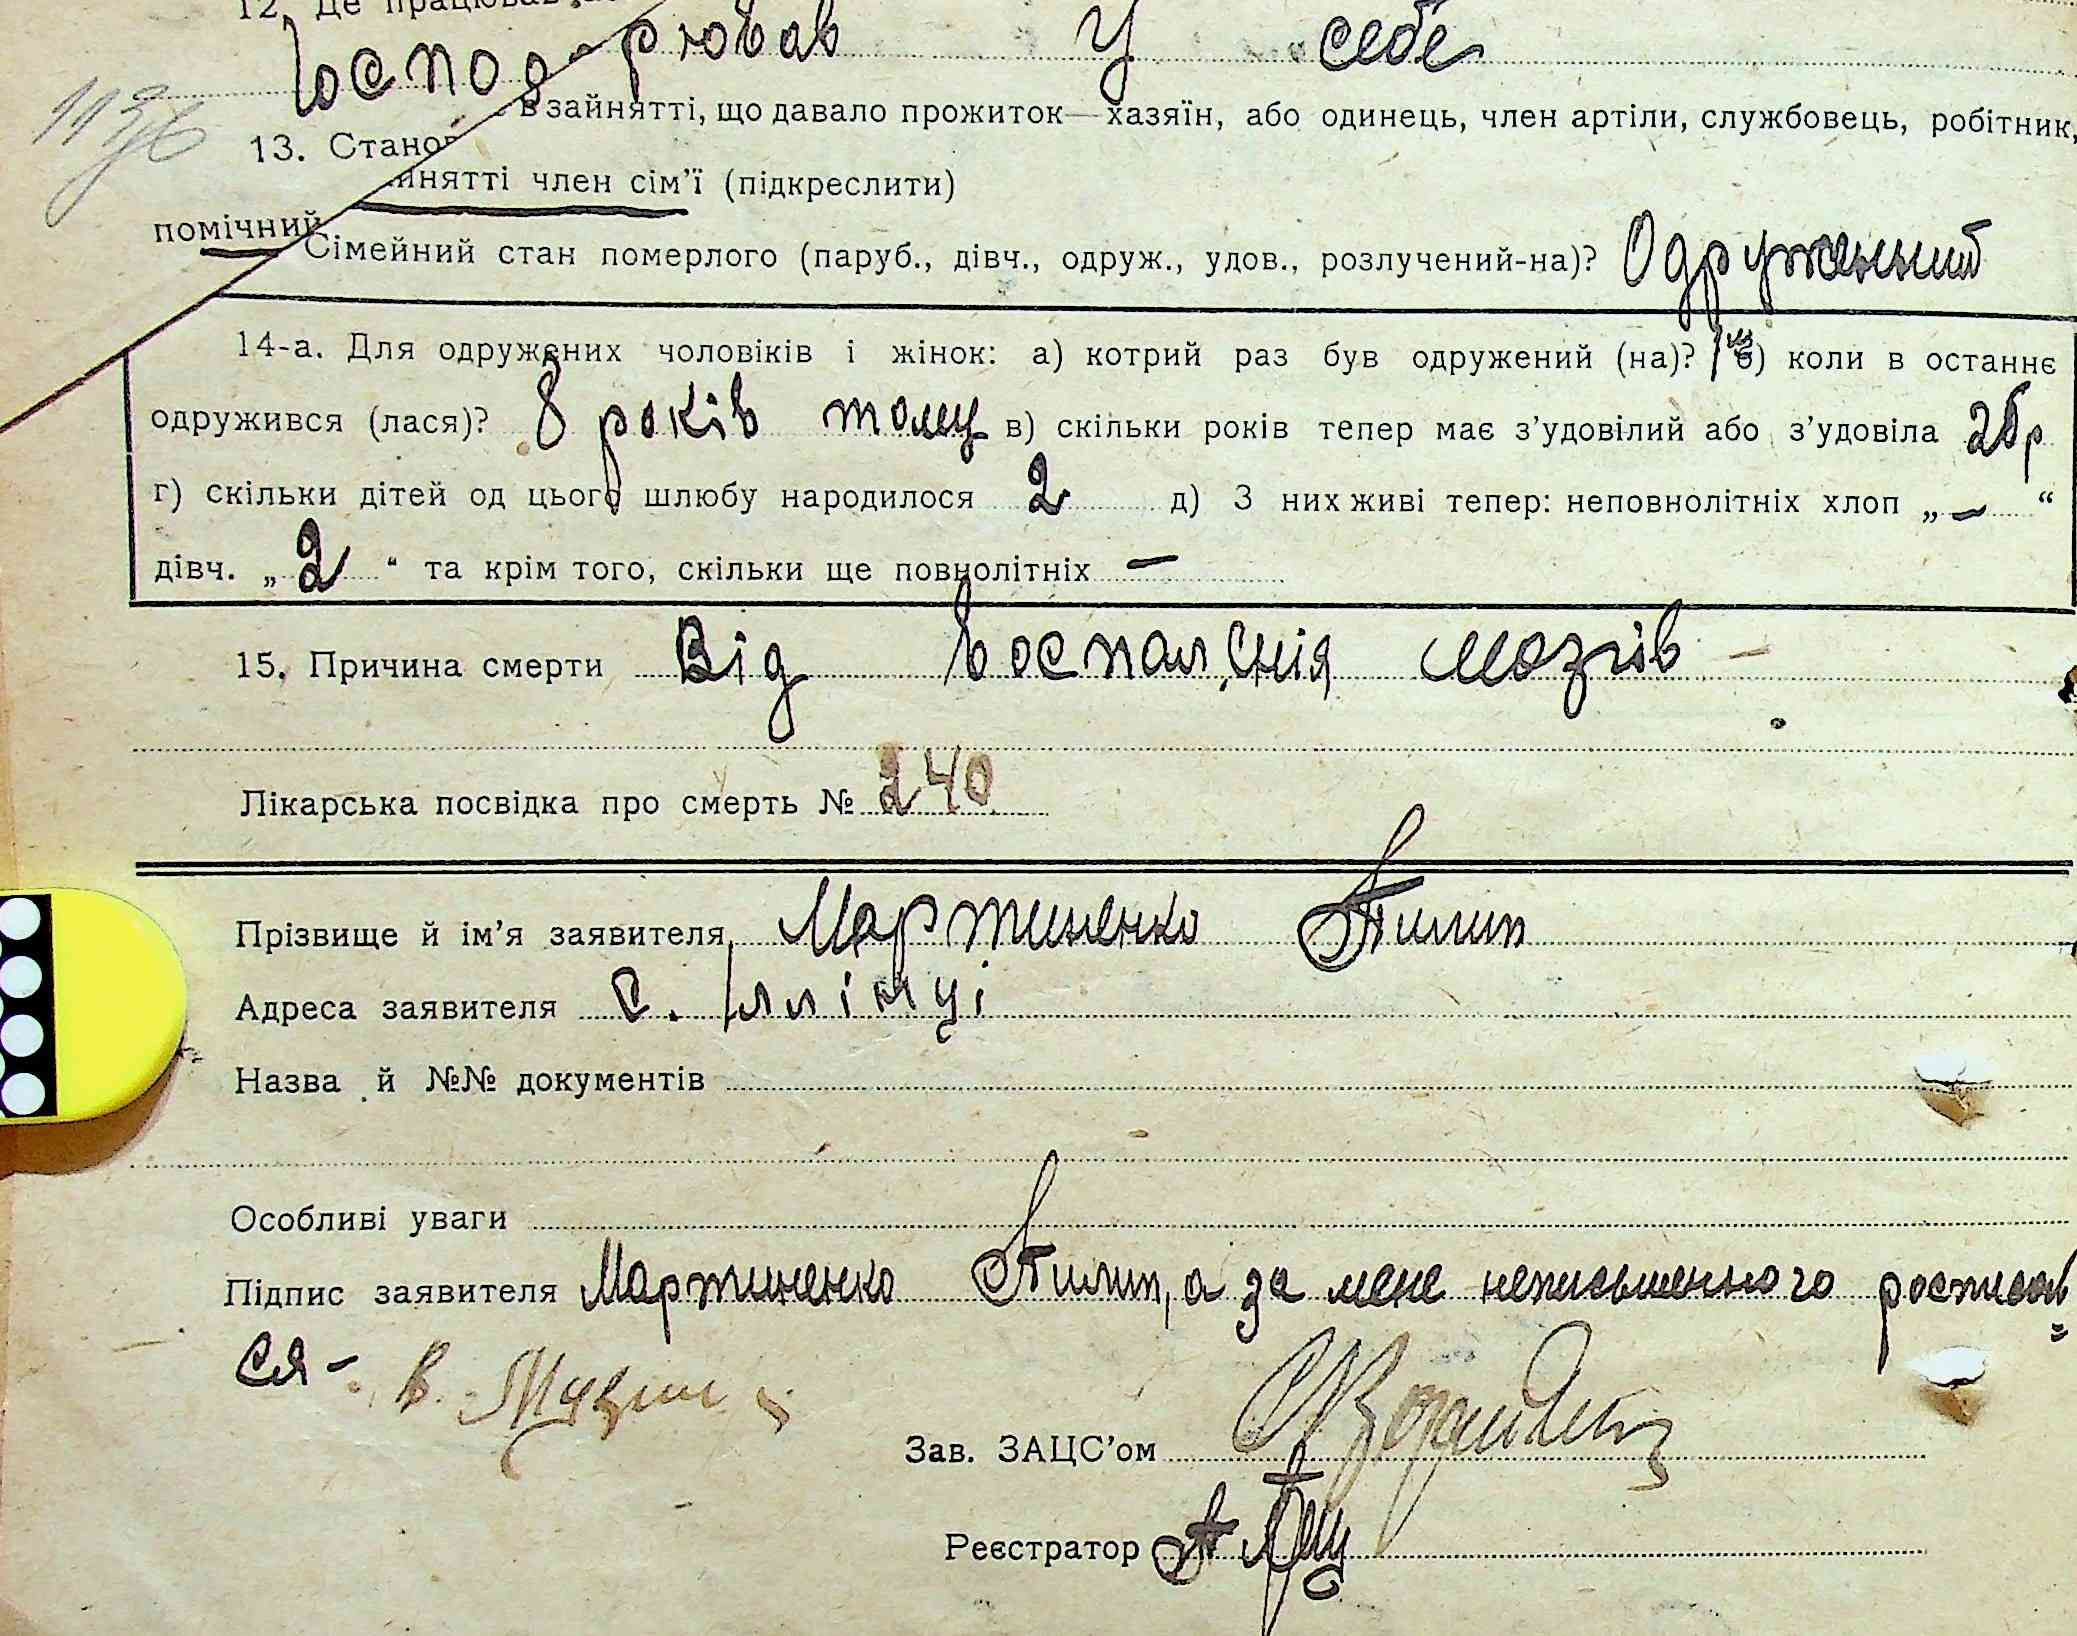 12. Де працював
Господ рював у себе
1136
13. Станов в зайнятті, що давало прожиток—хазяїн, або одинець, член артіли, службовець, робітник,
помічний йнятті член сім’ї (підкреслити)
Сімейний стан померлого (паруб., дівч., одруж., удов., розлучений-на)? Одруженний
14-а. Для одружених чоловіків і жінок: а) котрий раз був одружений (на)? 1ий б) коли в останнє
одружився (лася)? 8 років тому в) скільки років тепер має з’удовілий або з’удовіла 26 р
г) скільки дітей од цього шлюбу народилося 2 д) З них живі тепер: неповнолітніх хлоп „ — “
дівч. „ 2 “ та крім того, скільки ще повнолітніх —
15. Причина смерти Від воспаленія мозгів —
Лікарська посвідка про смерть № 240
Прізвище й ім’я заявителя Мартиненко Пилип
Адреса заявителя с. Іллінці
Назва й №№ документів
Особливі уваги
Підпис заявителя Мартиненко Пилип, а за мене неписьменного росписав=
ся —
Зав. ЗАЦС’ом
Реєстратор